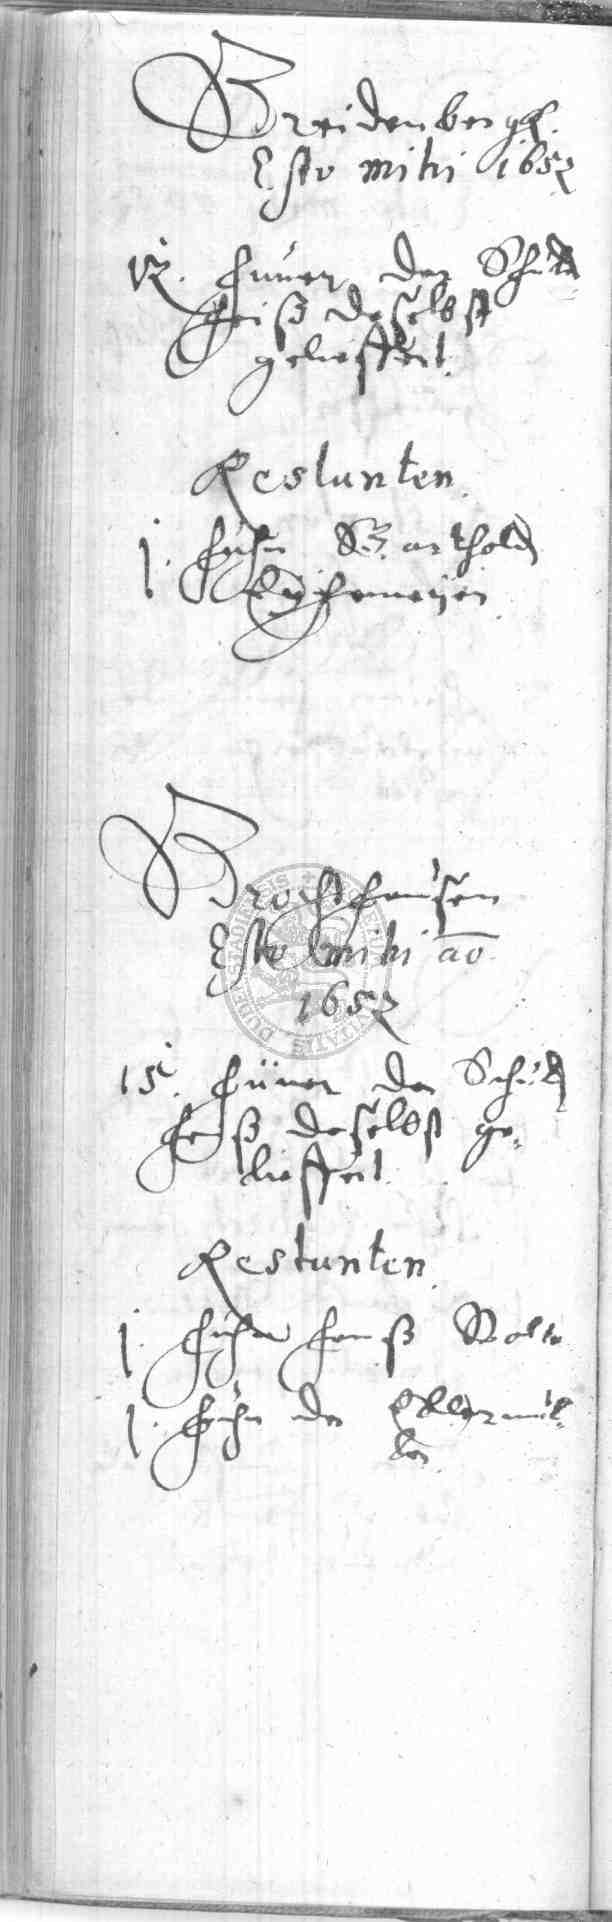 Breidenbergk.
Esto mihi 1652
12. hüner der Schuldt
heiß daselbst
gelieffert.
Restanten.
1. huhn Barthold
Brochthausen
Esto mihi ao
1652
15. hüner der Schuld
heiß daselbst ge-
lieffert.
Restanten.
1. huhn Hanß Nolte
1. huhn der Ellermül-
ler